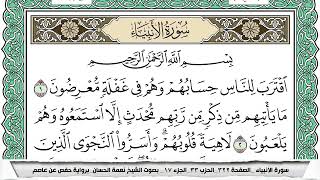 سُورَةُ الأَنبِيَاءِ
بِسْمِ اللَّهِ الرَّحْمَٰنِ الرَّحِيمِ
ٱقۡتَرَبَ لِلنَّاسِ حِسَابُهُمۡ وَهُمۡ فِي غَفۡلَةٖ مُّعۡرِضُونَ ١
مَا يَأۡتِيهِم مِّن ذِكۡرٖ مِّن رَّبِّهِم مُّحۡدَثٍ إِلَّا ٱسۡتَمَعُوهُ وَهُمۡ
يَلۡعَبُونَ ٢ لَاهِيَةٗ قُلُوبُهُمۡۗ وَأَسَرُّواْ ٱلنَّجۡوَى ٱلَّذِينَ
سورة الأنبياء الصفحة ٣٢٢ الحزب ٣٣ الجزء ١٧ بصوت الشيخ نعمة الحسان برواية حفص عن عاصم